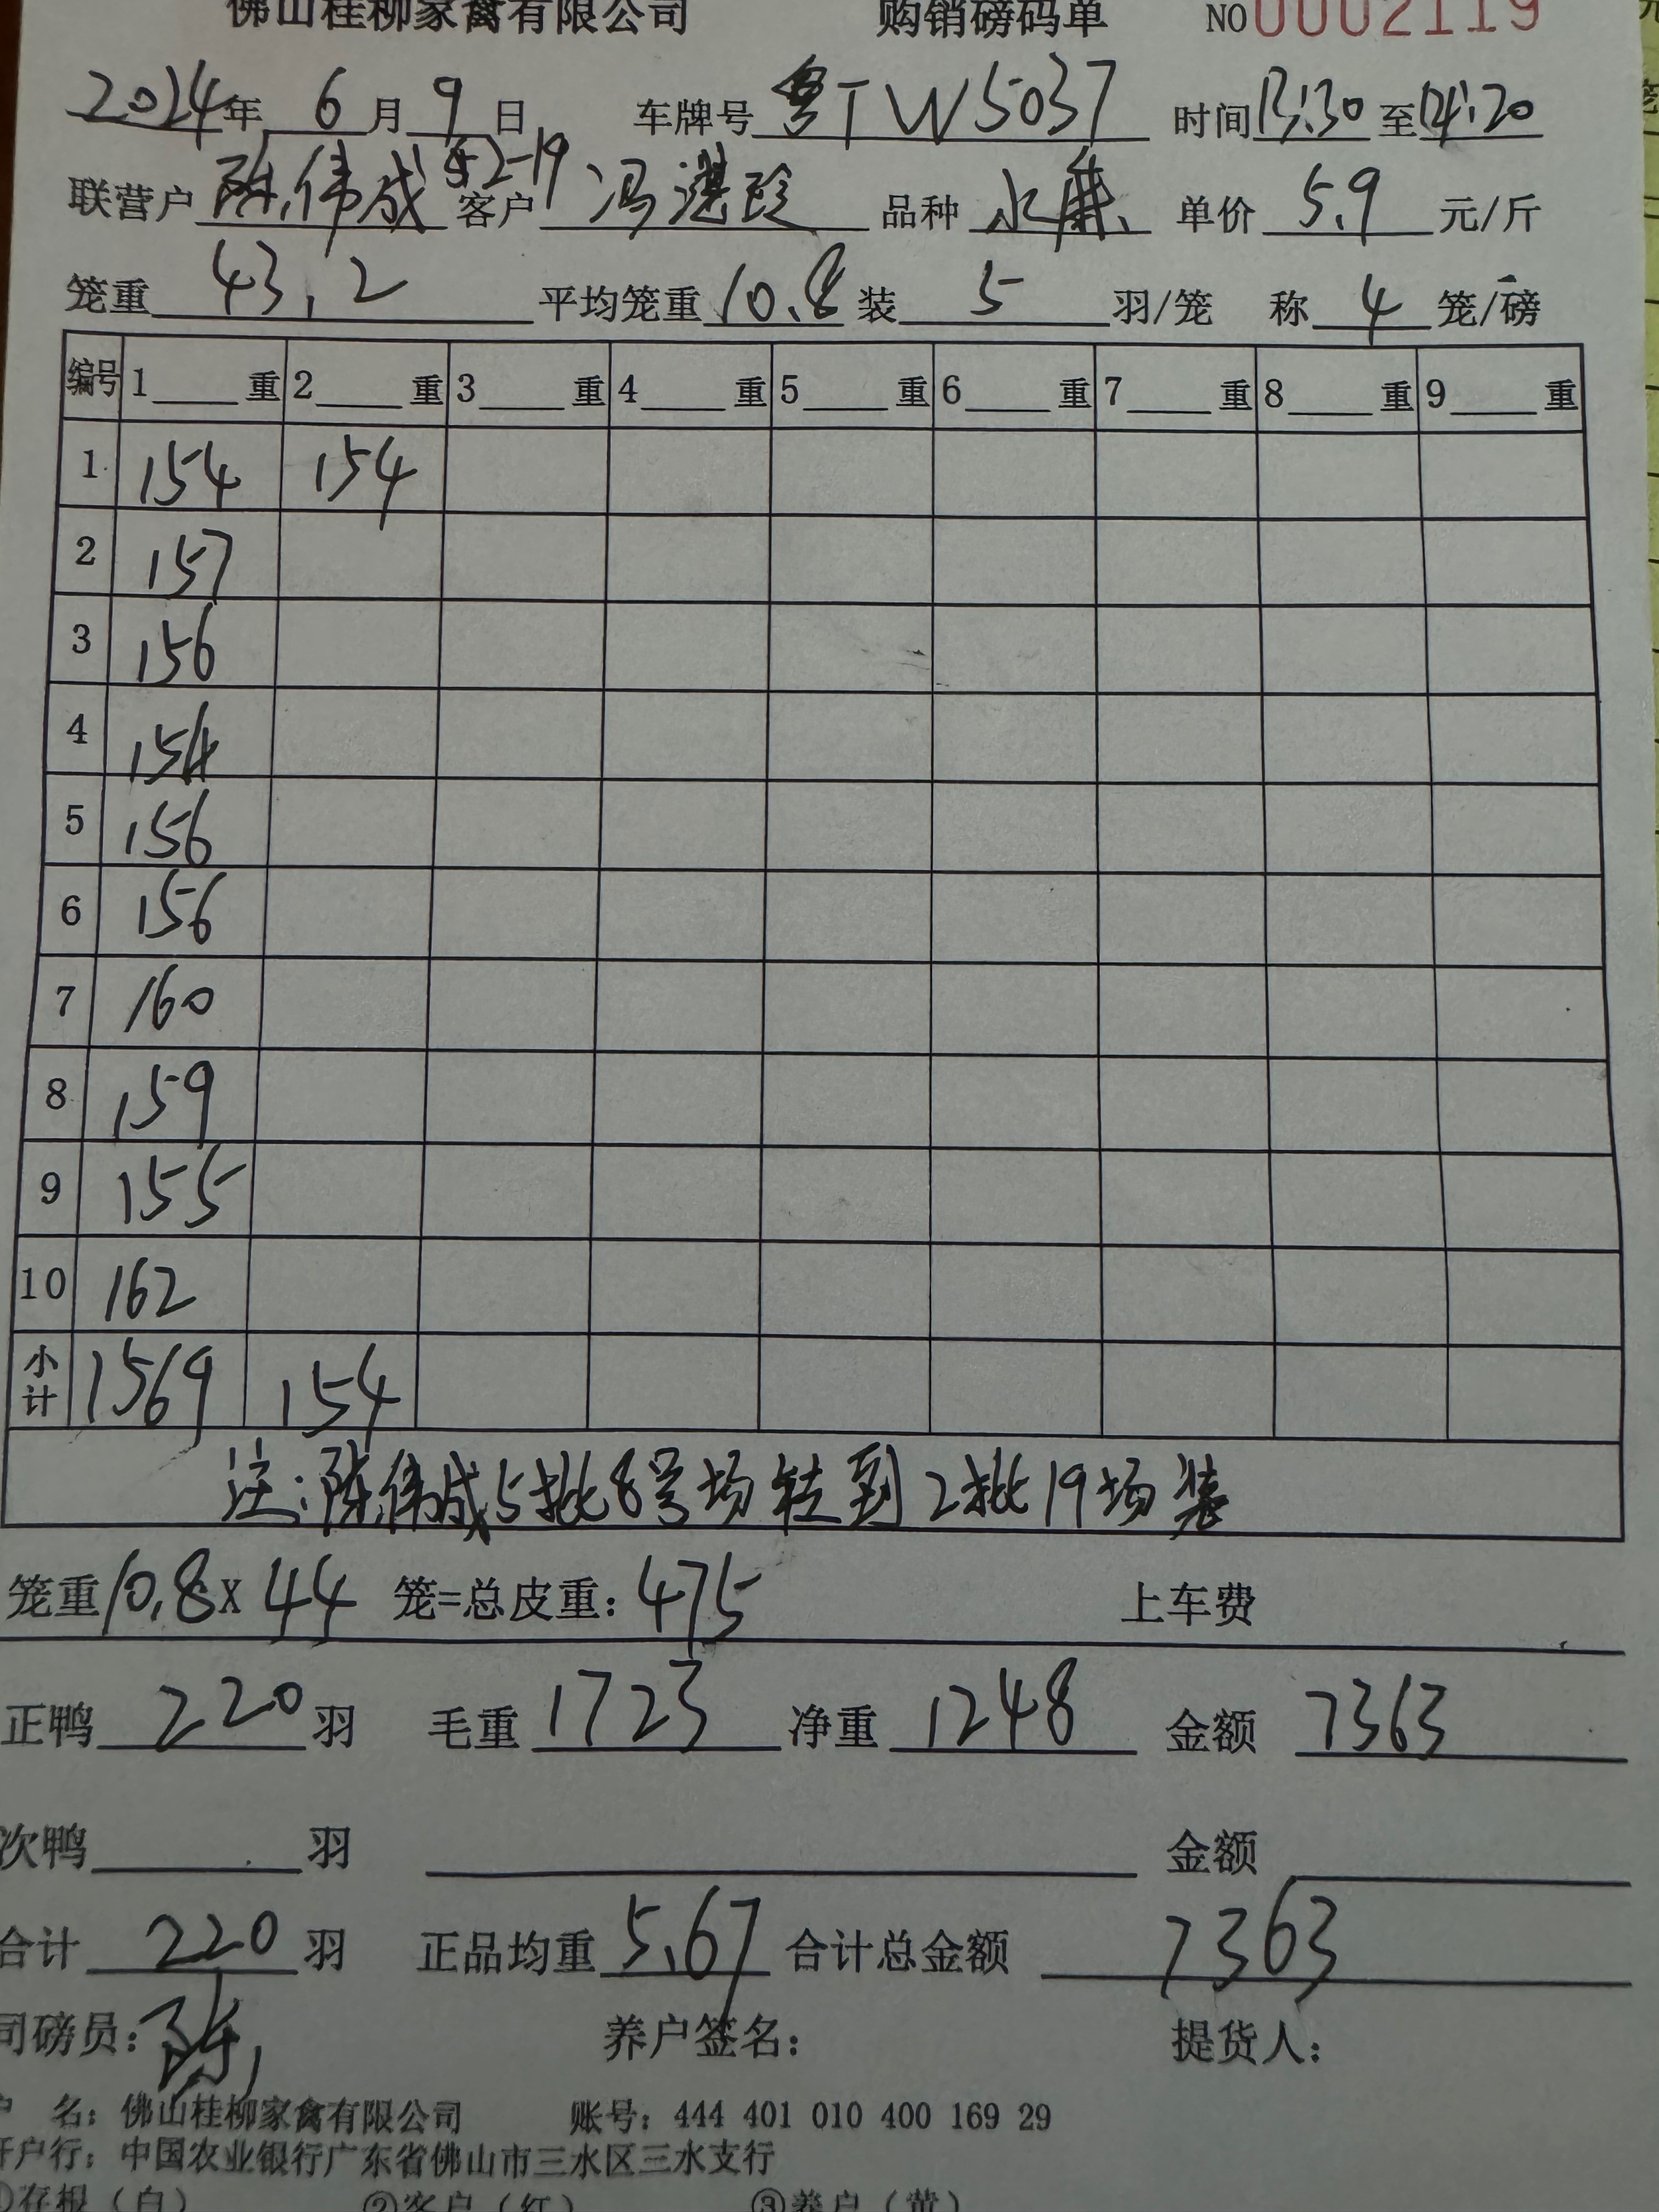 佛山桂柳家禽有限公司 购销磅码单 NO 0002119
2024年 6月9日 车牌号 粤TW5037 时间13:30至14:20
联营户 陈伟成 52-19 客户 冯湛玲 品种 单价 5.9 元/斤
笼重 43.2 平均笼重 10.8 装 5 羽/笼 称 4 笼/磅
编号 1 重 2 重 3 重 4 重 5 重 6 重 7 重 8 重 9 重
1 154 154
2 157
3 156
4 154
5 156
6 156
7 160
8 159
9 155
10 162
小计 1569 154
注:陈伟成5批8号场转到2批19场装
笼重10.8X 44 笼=总皮重:475 上车费
正鸭 220 羽 毛重 1723 净重 1248 金额 7363
次鸭 羽 金额
合计 220 羽 正品均重 5.67 合计总金额 7363
司磅员:陈 养户签名: 提货人:
户 名:佛山桂柳家禽有限公司 账号:444 401 010 400 169 29
开户行:中国农业银行广东省佛山市三水区三水支行
①存根(白) ②客户(红) ③养户(黄)